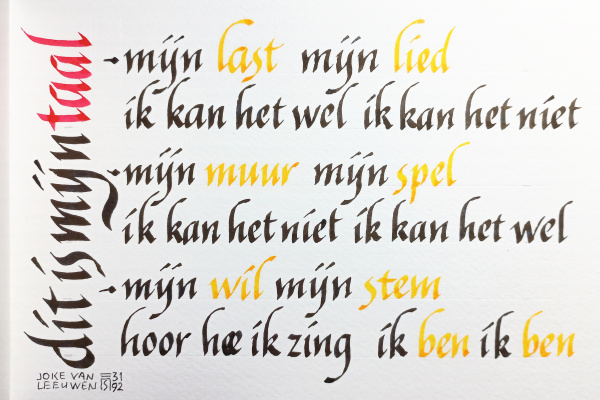 dit is mijn taal
mijn last mijn lied
ik kan het wel ik kan het niet
mijn muur mijn spel
ik kan het niet ik kan het wel
mijn wil mijn stem
hoor hoe ik zing ik ben ik ben
JOKE VAN
LEEUWEN
31
92